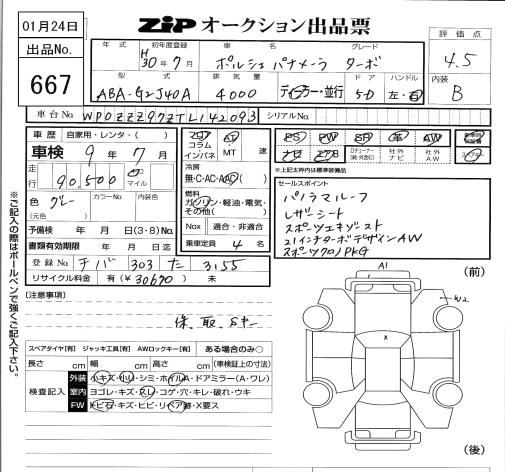 01月24日
出品No.
667
ZiP オークション出品票
評価点
4.5
内装
B
年式 初年度登録 車名 グレード
H30年7月 ポルシェ パナメーラ ターボ
型式 排気量 ドア ハンドル
ABA-G2J40A 4000 ディーラー・並行 5D 左・右
車台No. WP0ZZZ97ZTL142093 シリアルNo.
車歴 自家用・レンタ・( )
車検 9年 7月
走行 90,500 km マイル
色 グレー カラーNo. 内装色
(元色)
予備検 年 月 日(3・8)No.
書類有効期限 年 月 日迄
登録No. チバ 303 た 3155
リサイクル料金 有(¥30670) 未
フロア コラム インパネ AT MT 速
冷房
無・C・AC・AAC( )
燃料
ガソリン・軽油・電気・その他( )
Nox 適合・非適合
乗車定員 4名
PS PW SR 革 AW
ナビ エアB Dチューナー(純・外含む) 社外ナビ 社外AW
※上記太枠内は標準装備品
セールスポイント
パノラマルーフ
レザーシート
スポーツエキゾースト
21インチターボデザインAW
スポーツクロノPKG
[注意事項]
保、取、Sキー
スペアタイヤ[有] ジャッキ工具[有] AWロックキー[有] ある場合のみ○
長さ cm 幅 cm 高さ cm (車検証上の寸法)
検査記入
外装 小キズ・小U・シミ・ホイルA・ドアミラー(A・ワレ)
室内 ヨゴレ・キズ・スレ・コゲ・穴・キレ・破れ・ウキ
FW トビ石・キズ・ヒビ・リペア跡・X要ス
A1
(前)
W2
X
(後)
※ご記入の際はボールペンで強くご記入下さい。